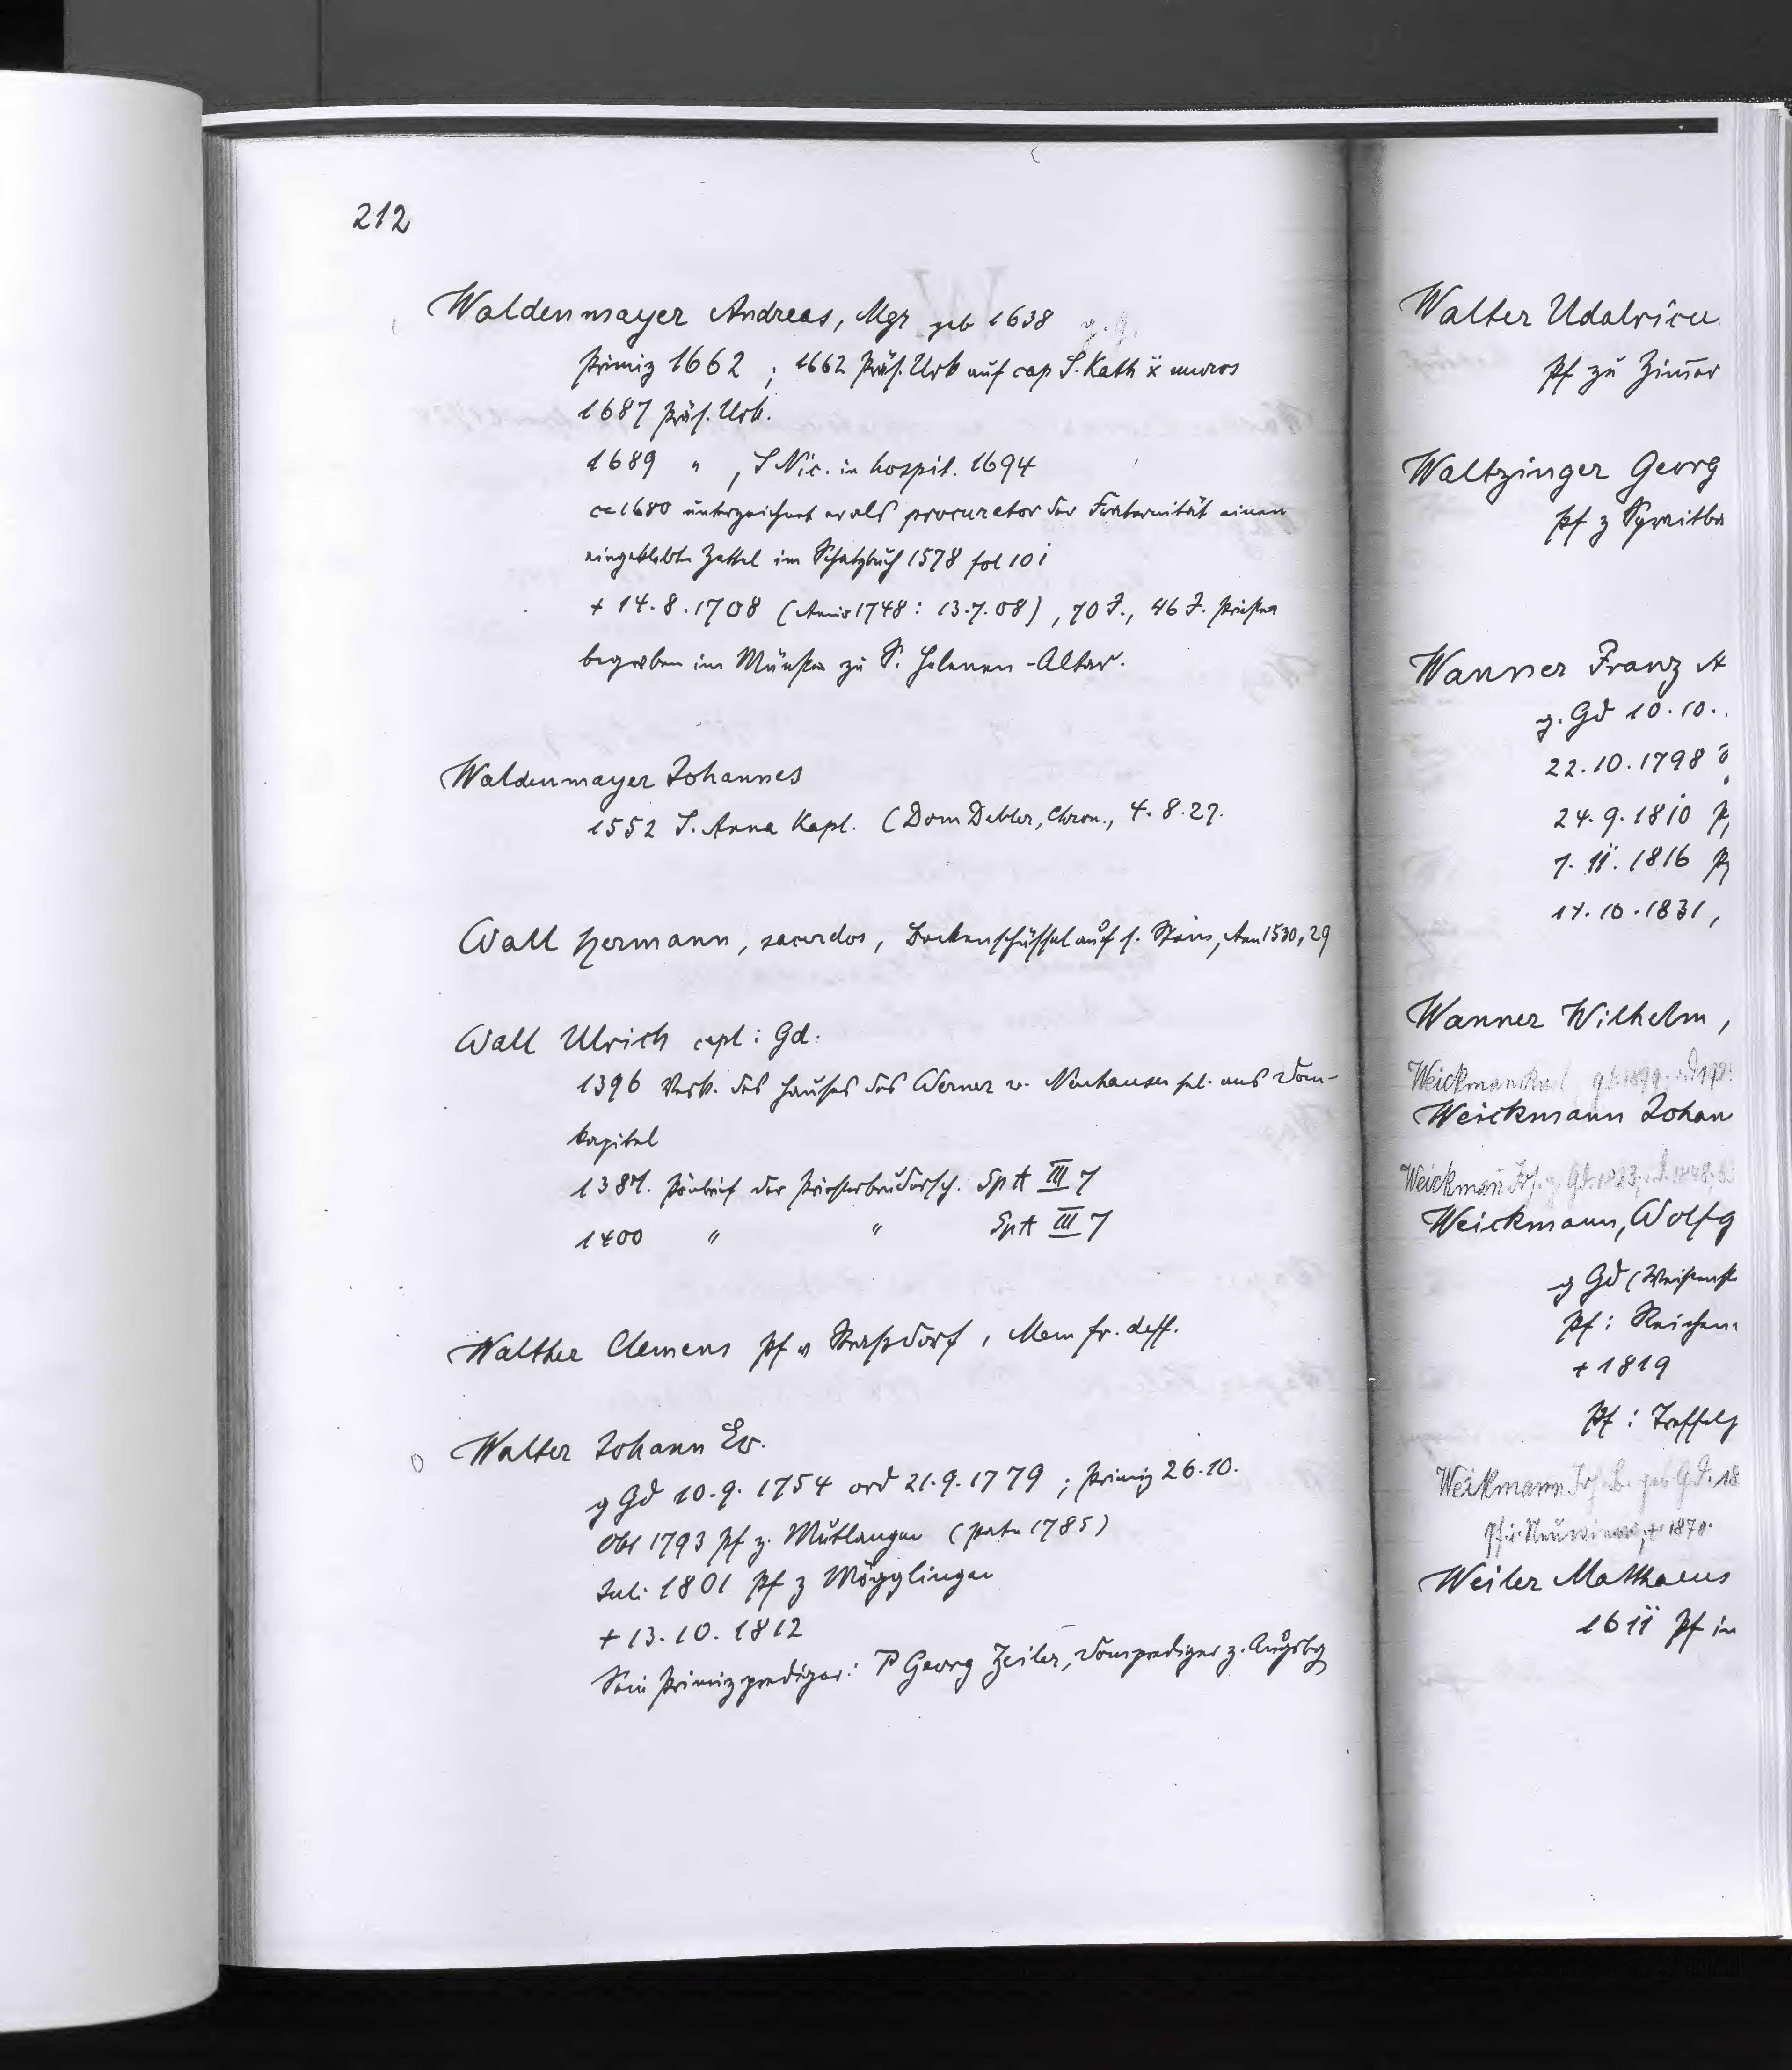 212
Waldenmayer Andreas, Mgr geb 1638 g. g.
Primiz 1662 ; 1662 Präs. Urk auf cap S. Kath ẍ muros
1687 Präs. Urk.
1689 " , S Nic. in hospit. 1694
ca 1680 unterzeichnet er als procurator der Fraternität einen
eingeklebten Zettel im Schatzbuch 1578 fol 101
+ 14.8.1708 (Anniv 1748: 13.7.08), 70 J., 46 J. Priester
begraben im Münster zu S. Helenen-Altar.
Waldenmayer Johannes
1552 S. Anna Kapl. (Dom Debler, Chron., 4.8.27.
Wall Hermann, sacerdos, auf s. Stein, Ann 1530, 29
Wall Ulrich capl: Gd.
1396 Verk. des Hauses des Werner v. Neuhausen sel. ans Dom-
kapitel
1387. der Priesterbrudersch. SpA III 7
1400 " " SpA III 7
Walther Clemens Pf v Straßdorf, Mem fr. deff.
Walter Johann Ev.
g Gd 10.9.1754 ord 21.9.1779 ; Primiz 26.10.
Okt 1793 Pf z. Mutlangen (1785)
Juli 1801 Pf z Mögglingen
+ 13.10.1812
Sein Primizprediger: P Georg Zeiler, Domprediger z. Augsbg
Walter Udalricu
Pf zu Zimer
Waltzinger Georg
Pf z Spraitba
Wanner Franz A
g. Gd 10.10.
22.10.1798
24.9.1810 P
7.11.1816 P
14.10.1831,
Wanner Wilhelm,
Weickmann
Weickmann Johan
Weickmann Joh. g. Gd. 1823
Weickmann, Wolfg
g Gd (Weißenst
Pf: Reichen
+ 1819
Pf: Treffels
Weikmann Joh. B. geb Gd. 18
1870.
Weiler Matthaeus
1611 Pf in